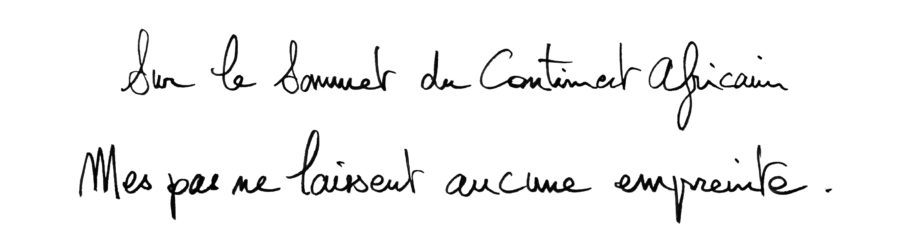 Sur le Sommet du Continent Africain
Mes pas ne laissent aucune empreinte.